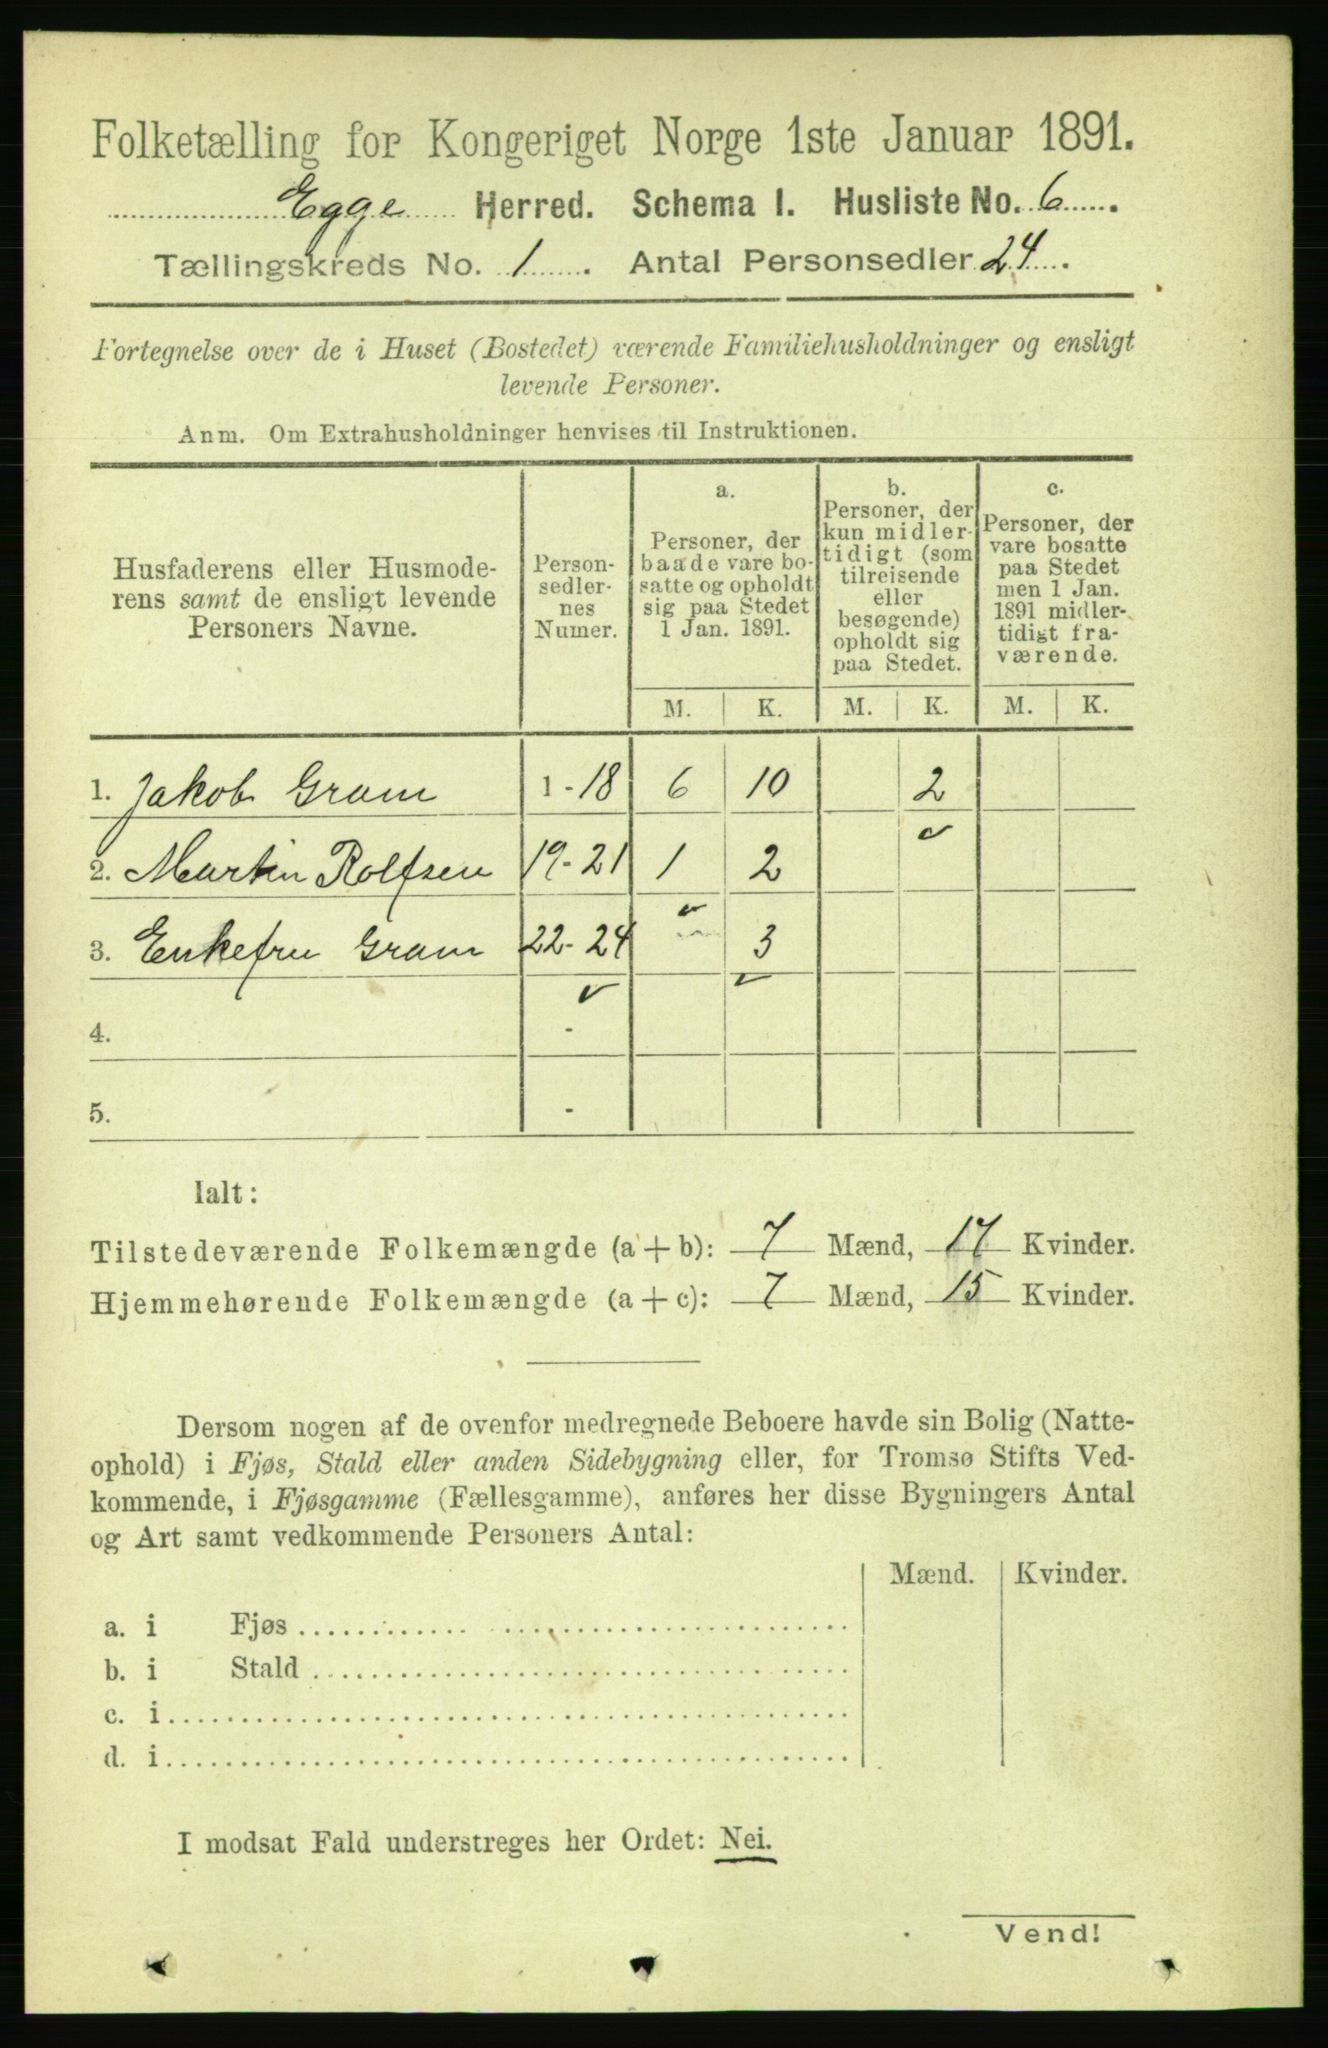 Folketælling for Kongeriget Norge 1ste Januar 1891.
Egge Herred. Schema I. Husliste No. 6.
Tællingskreds No. 1. Antal Personsedler 24.
Fortegnelse over de i Huset (Bostedet) værende Familiehusholdninger og ensligt
levende Personer.
Anm. Om Extrahusholdninger henvises til Instruktionen.
Husfaderens eller Husmode-
rens samt de ensligt levende
Personers Navne.
Person-
sedler-
nes
Numer.
a.
Personer, der
baade vare bo-
satte og opholdt
sig paa Stedet
1 Jan. 1891.
b.
Personer, der
kun midler-
tidigt (som
tilreisende
eller
besøgende)
opholdt sig
paa Stedet.
c.
Personer, der
vare bosatte
paa Stedet
men 1 Jan.
1891 midler-
tidigt fra-
værende.
M. K. M. K. M. K.
1. Jakob Gram 1-18 6 10 2
2. Martin Rolfsen 19-21 1 2
3. Enkefru Gram 22-24 3
4. -
5. -
Ialt:
Tilstedeværende Folkemængde (a + b): 7 Mænd, 17 Kvinder.
Hjemmehørende Folkemængde (a + c): 7 Mænd, 15 Kvinder.
Dersom nogen af de ovenfor medregnede Beboere havde sin Bolig (Natte-
ophold) i Fjøs, Stald eller anden Sidebygning eller, for Tromsø Stifts Ved-
kommende, i Fjøsgamme (Fællesgamme), anføres her disse Bygningers Antal
og Art samt vedkommende Personers Antal:
Mænd. Kvinder.
a. i Fjøs
b. i Stald
c. i
d. i
I modsat Fald understreges her Ordet: Nei.
Vend!